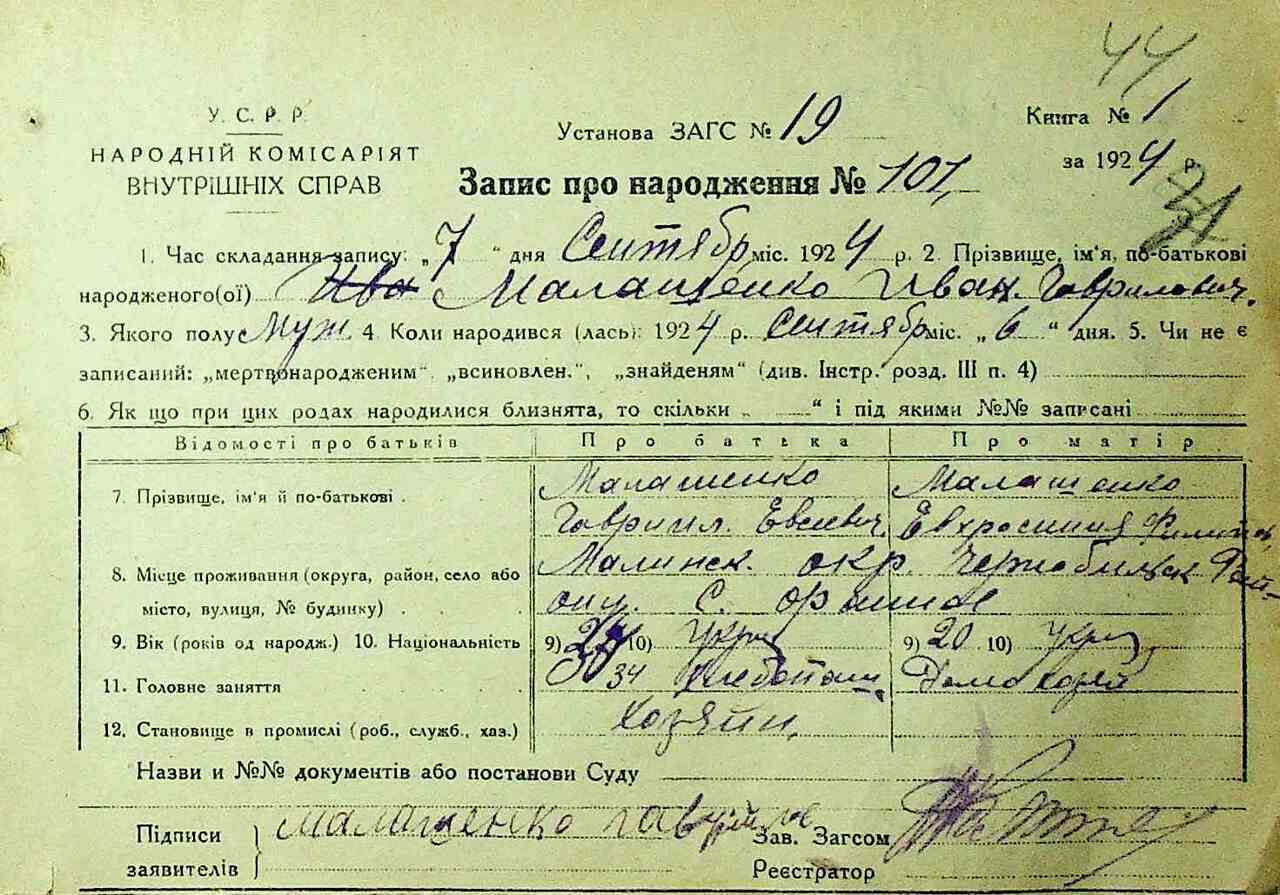 44
У. С. Р. Р.
НАРОДНІЙ КОМІСАРІЯТ
ВНУТРІШНІХ СПРАВ
Установа ЗАГС № 19
Книга № 1
за 1924 р.
Запис про народження № 101
1. Час складання запису: „7“ дня Сентябр міс. 1924 р. 2. Прізвище, ім'я, по-батькові
народженого(ої) Ива Малащенко Иван Гаврилович.
3. Якого полу Муж 4. Коли народився (лась): 1924 р. Сентябр міс. „6“ дня. 5. Чи не є
записаний: „мертвонародженим“, „всиновлен.“, „знайденям“ (див. Інстр. розд. III п. 4)
6. Як що при цих родах народилися близнята, то скільки „ “ і під якими №№ записані
Відомості про батьків Про батька Про матір
7. Прізвище, ім'я й по-батькові . Малашенко Малашенко
Гавриил. Евсеевич Евхросиния Филипов,
8. Місце проживання (округа, район, село або Малинск. окр. Чернобильск Рай-
місто, вулиця, № будинку) . . ону. С.
9. Вік (років од народж.) 10. Національність 9) 10) Укра 9) 20 10) Укра
11. Головне заняття 34 хлебопаш. Домохозяй
12. Становище в промислі (роб., служб., хаз.) Хозяйн.
Назви и №№ документів або постанови Суду
Підписи малашенко Зав. Загсом
заявителів Реєстратор